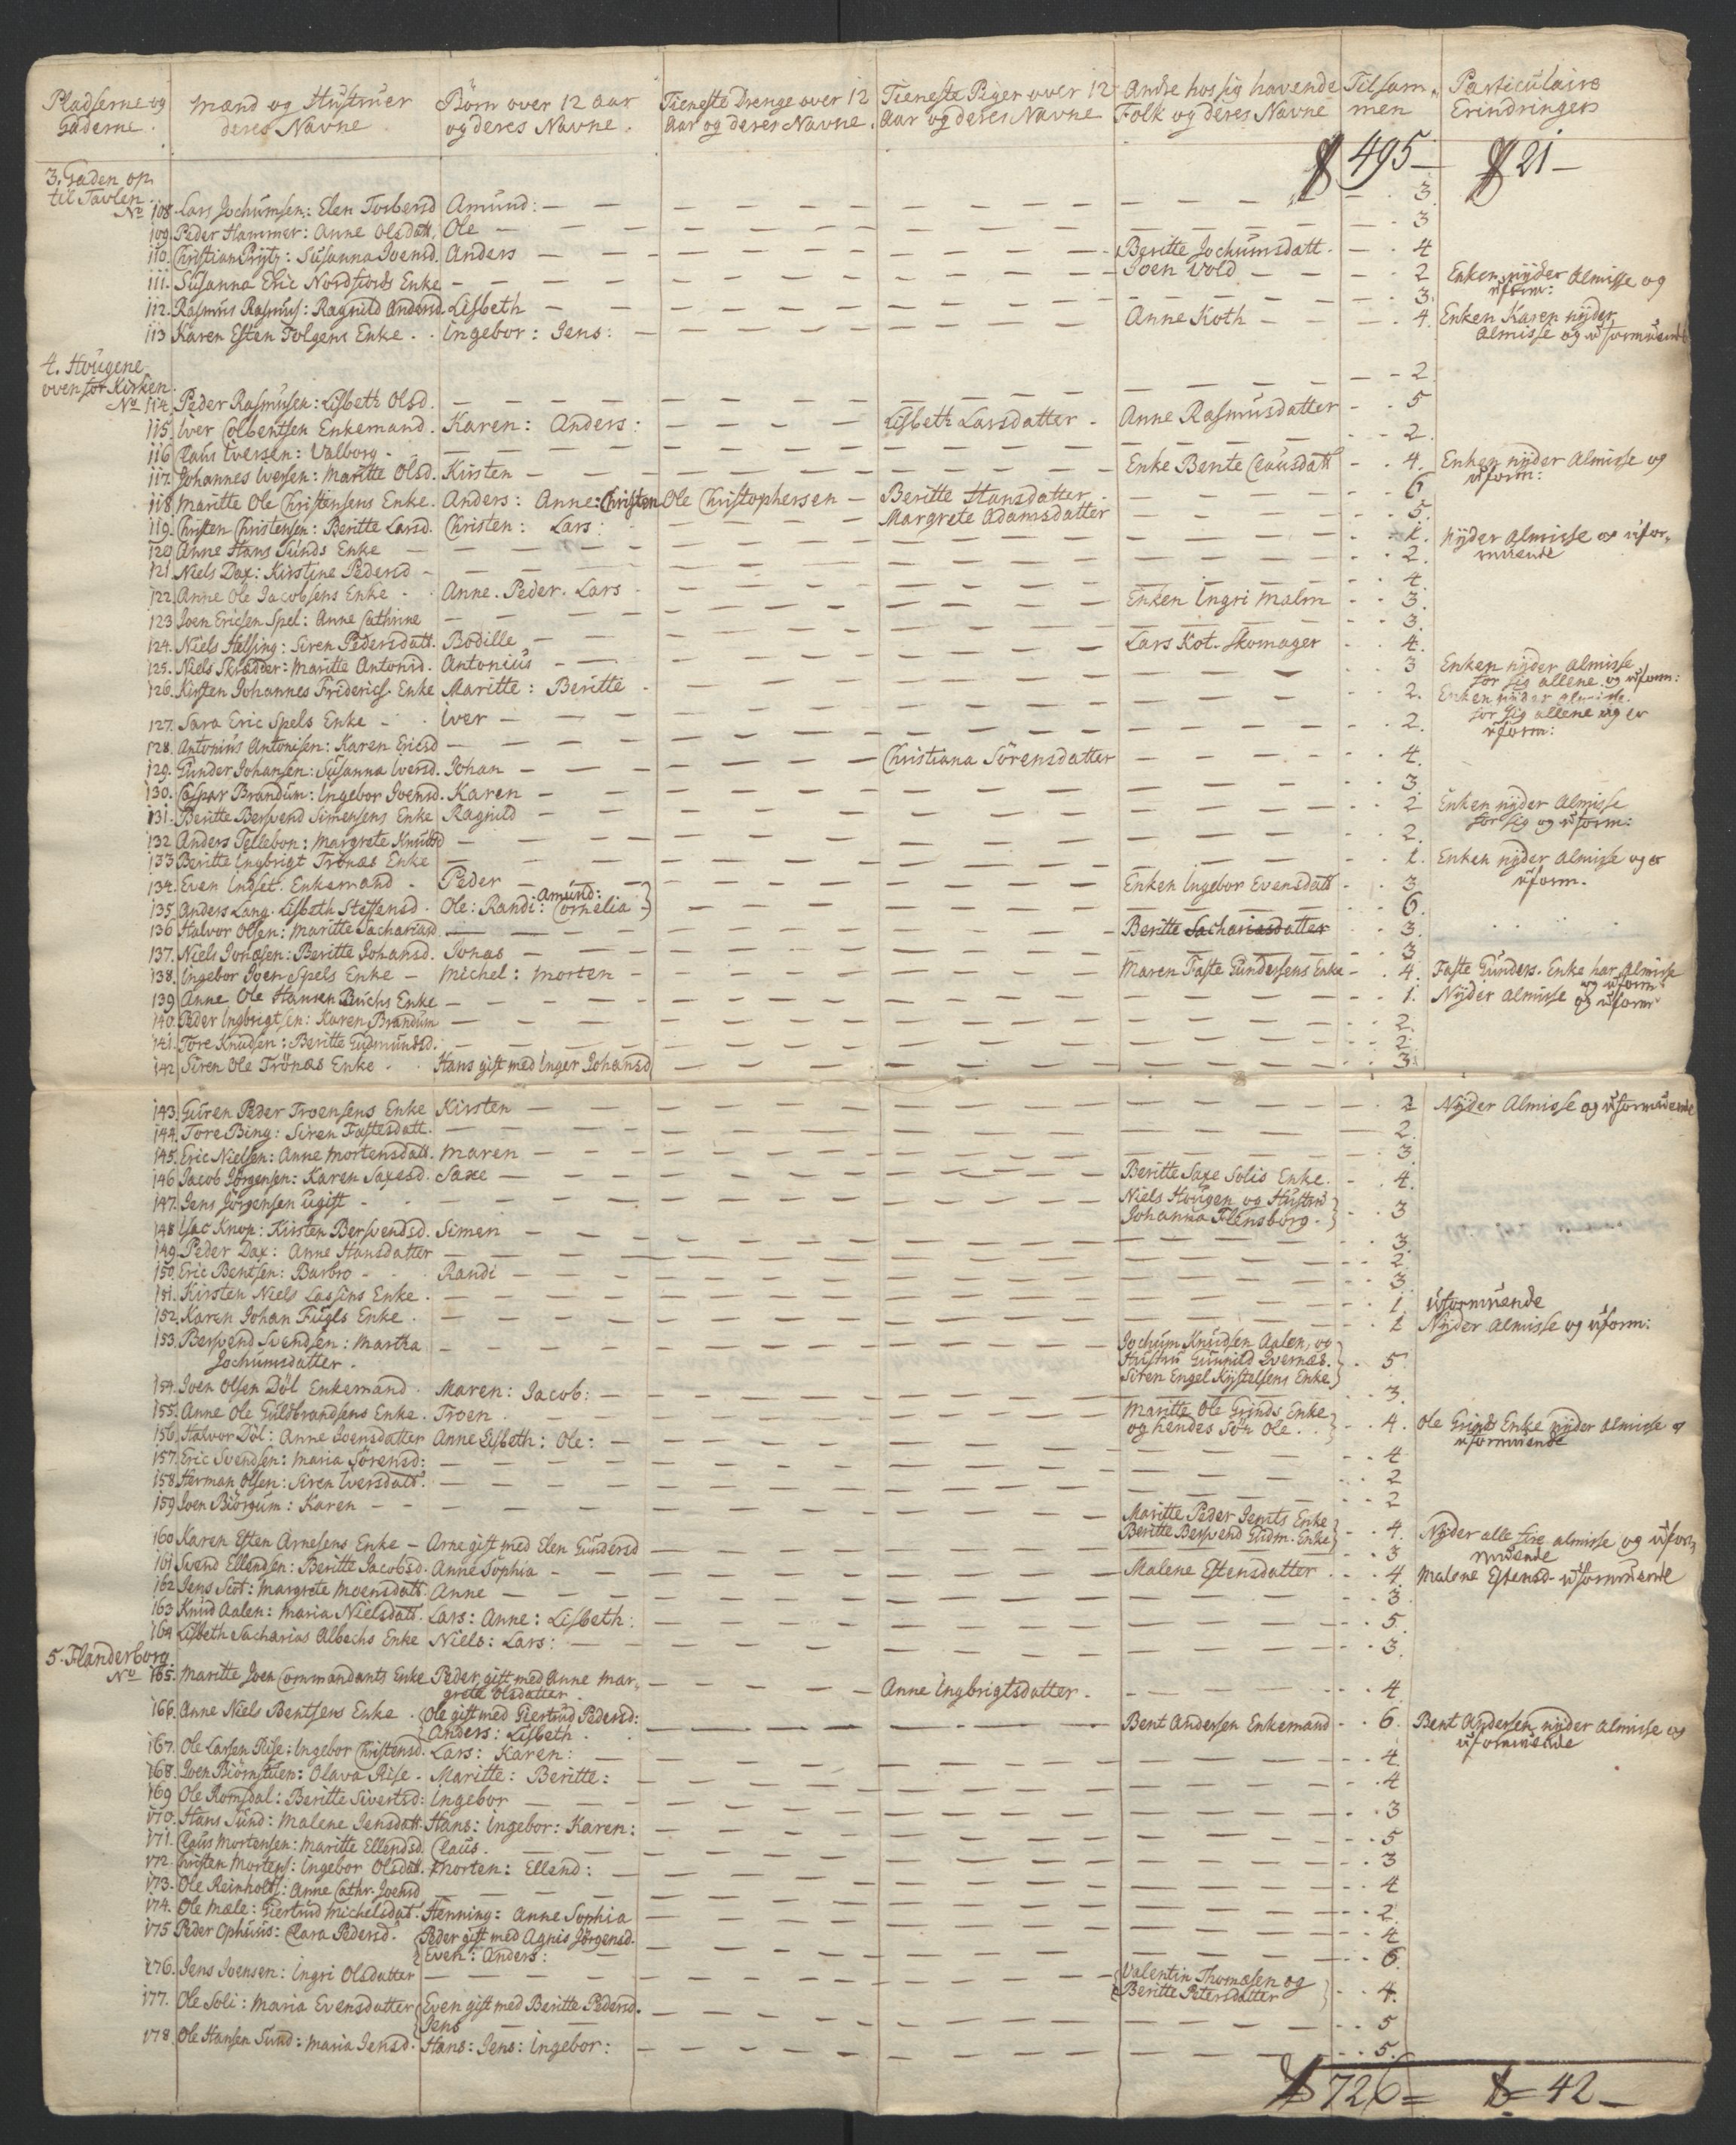 Pladserne og Gaderne. | Mænd og Hustruer deres Navne | Börn over 12 Aar og deres Navne. | Tieneste Drenge over 12 Aar og deres Navne. | Tieneste Piger over 12 Aar og deres Navne | Andre hos sig havende Folk og deres Navne | Tilsammen | Particulaire Erindringer
495 — 21 —
3. Gaden op til Tavlen.
No 108. Lars Jochumsen: Elen Torbersd Amund: 3.
109. Peder Hammer: Anne Olsdatt. Ole 3
110. Christian Pryty: Susanna Joensd. Anders Beritte Jochumsdatt. 4
111. Susanna Eric Nordfiords Enke Joen Vold 2 Enken nyder Almisse og uform:
112. Rasmus Rasmus: Ragnild Andersd. Lisbeth 3.
113 Karen Esten Folgens Enke. Ingebor: Jens: Anne Koth 4. Enken Karen nyder Almisse og uformuende
4. Hougene oven for Kirken.
No 114. Peder Rasmusen: Lisbeth Olsd. 2.
115. Iver Colbentsen Enkemand. Karen: Anders: Lisbeth Larsdatter. Anne Rasmusdatter 5
116 Claus Iversen: Valborg. 2.
117. Johannes Iversen: Maritte Olsd. Kirsten Enke Bente Clausdatt 4. Enken nyder Almisse og uform:
118. Maritte Ole Christensens Enke. Anders: Anne: Christen Ole Christophersen Beritte Hansdatter 6
119. Christen Christensen: Beritte Larsd. Christen: Lars: Margrete Adamsdatter 5.
120 Anne Hans Sunds Enke 1. nyder Almisse og uformuende
121. Niels Dax: Kirstine Pedersd 2.
122. Anne Ole Jacobsens Enke Anne. Peder. Lars 4.
123 Joen Ericsen Spel: Anne Cathrine Enken Ingri Malm 3.
124. Niels Helsing: Siren Pedersdatt. Bodille 3.
125. Niels Skrædder: Maritte Antonisd. Antonius Lars Kot. Skomager 4.
126. Kirsten Johannes Friderics. Enke Maritte: Beritte 3 Enken nyder Almisse for sig allene og uform:
127. Sara Eric Spels Enke Iver 2. Enken nyder Almisse for sig allene og er uform:
128. Antonius Antonisen: Karen Ericsd 2.
129. Gunder Johansen: Susanna Iversd. Johan Christiana Sörensdatter 4.
130. Caspar Brandum: Ingebor Joensd. Karen 3.
131. Beritte Bersvend Simensens Enke Ragnild 2 Enken nyder Almisse for sig og uform:
132 Anders Tellebon: Margrete Knudsd 2.
133 Beritte Ingbrigt Trönæs Enke 1. Enken nyder Almisse og er uform.
134. Even Indset. Enkemand Peder Enken Ingebor Evensdatt 3
135. Anders Lang. Lisbeth Steffensd. Ole: Randi: Amund: Cornelia 6.
136 Halvor Olsen: Maritte Sachariasd. Beritte Sachariasdatter 3.
137. Niels Jonæsen: Beritte Johansd. Jonas 3
138. Ingebor Joen Spels Enke Michel: Morten Maren Faste Gundersens Enke 4. Faste Gunders. Enke har Almisse og uform
139 Anne Ole Hansen Buchs Enke 1. Nyder Almisse og uform
140. Peder Ingbrigtsen: Karen Brandum 2.
141. Tore Knudsen: Beritte Gudmundsd. 2.
142 Siren Ole Trönæs Enke Hans gift med Inger Johansd 3.
143. Guren Peder Troensens Enke Kirsten 2 Nyder Almisse og uformuende
144. Tore Bing: Siren Fastesdatt. 2.
145. Eric Nielsen: Anne Mortensdatt. Maren 3.
146 Jacob Jörgensen: Karen Saxesd. Saxe Beritte Saxe Solis Enke. 4.
147. Jens Jörgensen ugift Niels Hougen og Hustru Johanna Flensborg. 3
148 Isac Knop: Kirsten Bersvendsd. Simen 3.
149 Peder Dax: Anne Hansdatter 2
150. Eric Bentsen: Barbro Randi 3.
151. Kirsten Niels Lassens Enke 1. uformuende
152. Karen Johan Fugls Enke. 1 Nyder Almisse og uform:
153. Bersvend Svendsen: Martha Jochumsdatter. Jochum Knudsen Aalen, og Hustru Gunnild Ivernæs. Siren Engel Kystelsens Enke 5
154. Joen Olsen Döl Enkemand. Maren: Jacob: 3.
155. Anne Ole Guldbrandsens Enke. Troen Maritte Ole Grinds Enke og hendes Sön Ole. 4. Ole Grinds Enke nyder Almisse og uformuende
156. Halvor Döl: Anne Joensdatter Anne Lisbeth: Ole: 4
157. Eric Svendsen: Maria Sörensd: 2
158. Herman Olsen: Siren Iversdatt. 2
159 Joen Biörgum: Karen Maritte Peder Jemts Enke Beritte Bersvend Gudm. Enke 4. Nyder alle fire almisse og uformuende
160 Karen Esten Arnesens Enke Arne gift med Elen Gundersd 3
161 Svend Ellendsen: Beritte Jacobsd. Anne Sophia Malene Estensdatter 4 Malene Estensd. uformuende
162. Jens Scot: Margrete Moensdatt Anne 3.
163 Knud Aalen: Maria Nielsdatt. Lars: Anne: Lisbeth: 5.
164 Lisbeth Sacharias Albechs Enke Niels: Lars: 3.
5. Flanderborg.
No 165. Maritte Joen Commandants Enke Peder gift med Anne Margrete Olsdatter. Anne Ingbrigtsdatter. 4.
166. Anne Niels Bentsens Enke. Ole gift med Giertrud Pedersd: Anders: Lisbeth. Bent Andersen Enkemand 6. Bent Andersen nyder Almisse og uformuende
167. Ole Larsen Rise: Ingebor Christensd. Lars: Karen: 4.
168. Joen Biörnstuen: Olava Rise. Maritte: Beritte: 4
169 Ole Romsdal: Beritte Sivertsd: Ingebor 3
170. Hans Sund: Malene Jensdatt. Hans: Ingebor: Karen: 5
171. Claus Mortensen: Maritte Ellendsd. Claus. 3
172. Christen Mortens: Ingebor Olsdatt. Morten: Ellend: 4
173. Ole Reinholts: Anne Cathr. Joensd 2.
174. Ole Mæle: Giertrud Michelsdat. Henning: Anne Sophia 4
175 Peder Ophuus: Clara Pedersd. Peder gift med Agnis Jörgensd. Even: Anders: 6.
176. Jens Joensen: Ingri Olsdatter Valentin Thomæsen og Beritte Petersdatter 4.
177. Ole Soli: Maria Evensdatter Even gift med Beritte Pedersd. Jens 5
178. Ole Hansen Sund: Maria Jensd. Hans: Jens: Ingebor: 5.
726 = 42 —